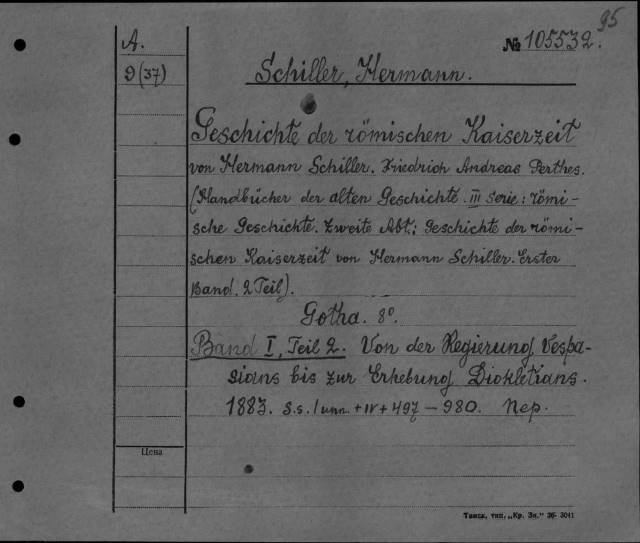 95
A.
№ 105532.
9(37)
Schiller, Hermann.
Geschichte der römischen Kaiserzeit
von Hermann Schiller. Friedrich Andreas Perthes.
(Handbücher der alten Geschichte. III Serie: römi-
sche Geschichte. Zweite Abt.: Geschichte der römi-
schen Kaiserzeit von Hermann Schiller. Erster
Band. 2 Teil).
Gotha. 8°.
Band I, Teil 2. Von der Regierung Vespa-
sians bis zur Erhebung Diokletians.
1883. S.s. 1 unn. + IV + 497 – 980. Пер.
Цена
Тамск. тип. „Кр. Зн.“ 36- 3041